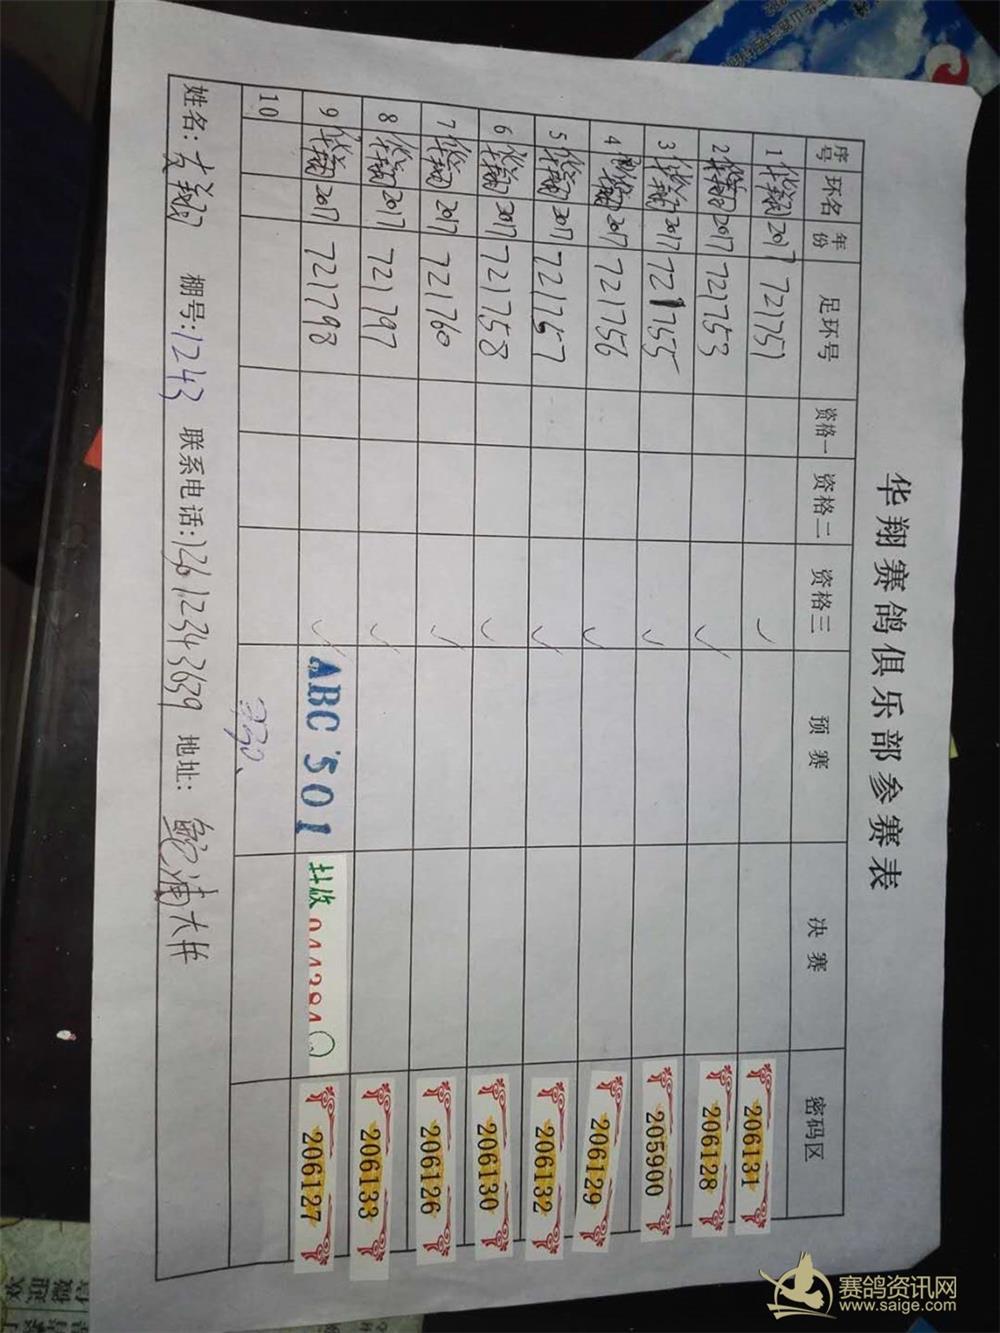 华翔赛鸽俱乐部参赛表
序号 环名 年份 足环号 资格一 资格二 资格三 预赛 决赛 密码区
1 华翔 2017 721751 ✓ 206131
2 华翔 2017 721753 ✓ 206128
3 华翔 2017 721755 ✓ 205900
4 华翔 2017 721756 ✓ 206129
5 华翔 2017 721757 ✓ 206132
6 华翔 2017 721758 ✓ 206130
7 华翔 2017 721760 ✓ 206126
8 华翔 2017 721797 ✓ 206133
9 华翔 2017 721798 ✓ ABC 501 044384 206127
10
姓名: 棚号:1243 联系电话:13612343639 地址:
欢迎微信
赛鸽资讯网
www.saige.com